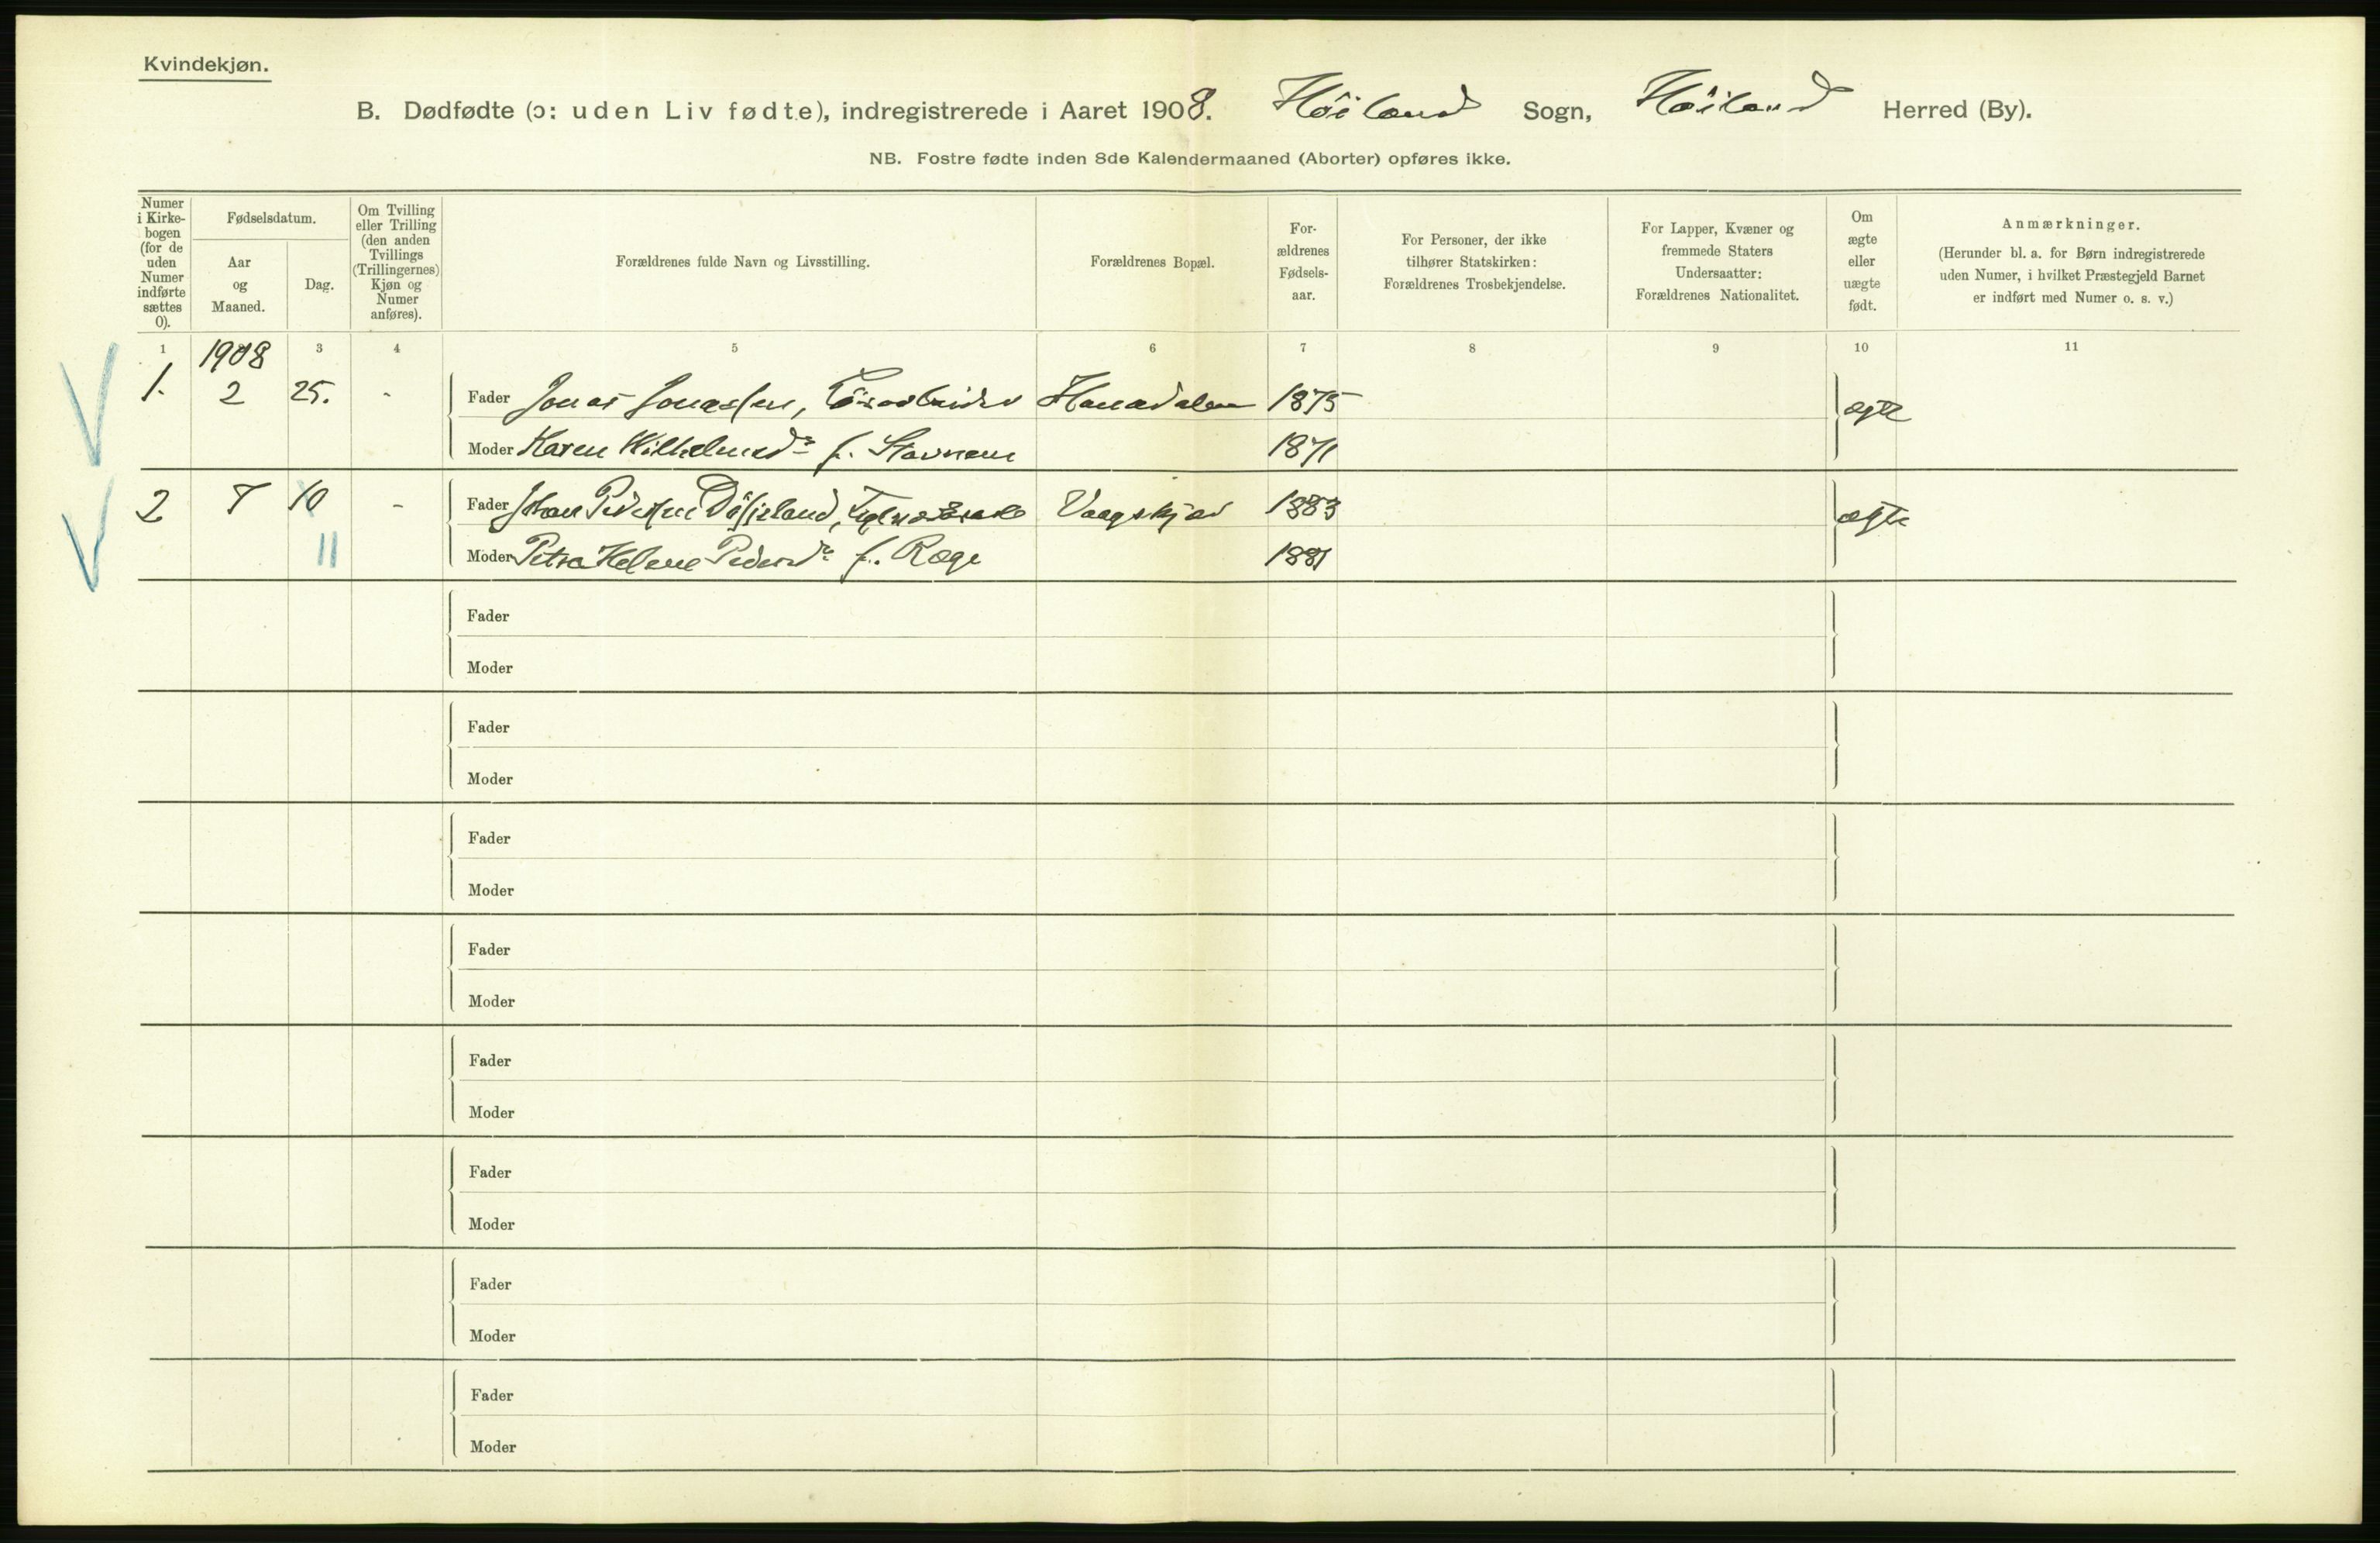 Kvindekjøn.
B. Dødfødte (ɔ: uden Liv fødte), indregistrerede i Aaret 1908. Høiland Sogn, Høiland Herred (By).
NB. Fostre fødte inden 8de Kalendermaaned (Aborter) opføres ikke.
Numer
i Kirke-
bogen
(for de
uden
Numer
indførte
sættes
0).
Fødselsdatum.
Aar
og
Maaned.
Dag.
Om Tvilling
eller Trilling
(den anden
Tvillings
(Trillingernes)
Kjøn og
Numer
anføres).
Forældrenes fulde Navn og Livsstilling.
Forældrenes Bopæl.
For-
ældrenes
Fødsels-
aar.
For Personer, der ikke
tilhører Statskirken:
Forældrenes Trosbekjendelse.
For Lapper, Kvæner og
fremmede Staters
Undersaatter:
Forældrenes Nationalitet.
Om
ægte
eller
uægte
født.
Anmærkninger.
(Herunder bl. a. for Børn indregistrerede
uden Numer, i hvilket Præstegjeld Barnet
er indført med Numer o. s. v.)
1 1908 3 4 5 6 7 8 9 10 11
1. 2 25. - Fader Jonas Jonassen, Løsarbeider Hanadalen 1875 ægte
Moder Karen Wilhelmsdr f. Stavnem 1871
2 7 10 - Fader Johan Pedersen 1883 ægte
11 Moder Petra Helene Pedersdr f. Ræge 1881
Fader
Moder
Fader
Moder
Fader
Moder
Fader
Moder
Fader
Moder
Fader
Moder
Fader
Moder
Fader
Moder